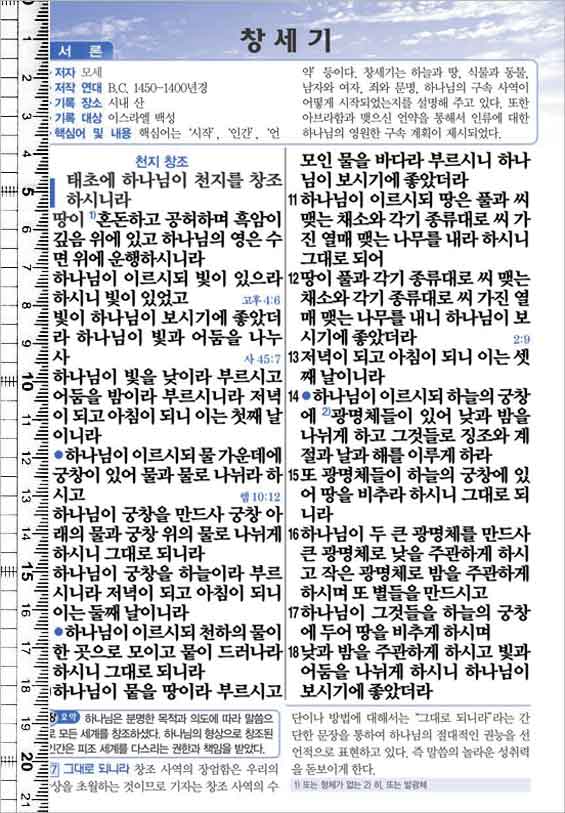 창세기
서 론
저자 모세
저작 연대 B.C. 1450-1400년경
기록 장소 시내 산
기록 대상 이스라엘 백성
핵심어 및 내용 핵심어는 '시작', '인간', '언
약' 등이다. 창세기는 하늘과 땅, 식물과 동물,
남자와 여자, 죄와 문명, 하나님의 구속 사역이
어떻게 시작되었는지를 설명해 주고 있다. 또한
아브라함과 맺으신 언약을 통해서 인류에 대한
하나님의 영원한 구속 계획이 제시되었다.
천지 창조
태초에 하나님이 천지를 창조
하시니라
땅이 1)혼돈하고 공허하며 흑암이
깊음 위에 있고 하나님의 영은 수
면 위에 운행하시니라
하나님이 이르시되 빛이 있으라
하시니 빛이 있었고 고후 4:6
빛이 하나님이 보시기에 좋았더
라 하나님이 빛과 어둠을 나누
사 사 45:7
하나님이 빛을 낮이라 부르시고
어둠을 밤이라 부르시니라 저녁
이 되고 아침이 되니 이는 첫째 날
이니라
●하나님이 이르시되 물 가운데에
궁창이 있어 물과 물로 나뉘라 하
시고 렘 10:12
하나님이 궁창을 만드사 궁창 아
래의 물과 궁창 위의 물로 나뉘게
하시니 그대로 되니라
하나님이 궁창을 하늘이라 부르
시니라 저녁이 되고 아침이 되니
이는 둘째 날이니라
●하나님이 이르시되 천하의 물이
한 곳으로 모이고 뭍이 드러나라
하시니 그대로 되니라
하나님이 뭍을 땅이라 부르시고
모인 물을 바다라 부르시니 하나
님이 보시기에 좋았더라
11 하나님이 이르시되 땅은 풀과 씨
맺는 채소와 각기 종류대로 씨 가
진 열매 맺는 나무를 내라 하시니
그대로 되어
12 땅이 풀과 각기 종류대로 씨 맺는
채소와 각기 종류대로 씨 가진 열
매 맺는 나무를 내니 하나님이 보
시기에 좋았더라 2:9
13 저녁이 되고 아침이 되니 이는 셋
째 날이니라
14 ●하나님이 이르시되 하늘의 궁창
에 2)광명체들이 있어 낮과 밤을
나뉘게 하고 그것들로 징조와 계
절과 날과 해를 이루게 하라
15 또 광명체들이 하늘의 궁창에 있
어 땅을 비추라 하시니 그대로 되
니라
16 하나님이 두 큰 광명체를 만드사
큰 광명체로 낮을 주관하게 하시
고 작은 광명체로 밤을 주관하게
하시며 또 별들을 만드시고
17 하나님이 그것들을 하늘의 궁창
에 두어 땅을 비추게 하시며
18 낮과 밤을 주관하게 하시고 빛과
어둠을 나뉘게 하시니 하나님이
보시기에 좋았더라
요약 하나님은 분명한 목적과 의도에 따라 말씀으
로 모든 세계를 창조하셨다. 하나님의 형상으로 창조된
인간은 피조 세계를 다스리는 권한과 책임을 받았다.
7 그대로 되니라 창조 사역의 장엄함은 우리의
상을 초월하는 것이므로 기자는 창조 사역의 수
단이나 방법에 대해서는 "그대로 되니라"라는 간
단한 문장을 통하여 하나님의 절대적인 권능을 선
언적으로 표현하고 있다. 즉 말씀의 놀라운 성취력
을 돋보이게 한다.
1) 또는 형체가 없는 2) 히, 또는 발광체
1
2
3
4
5
6
7
8
9
10
11
12
13
14
15
16
17
18
19
20
21